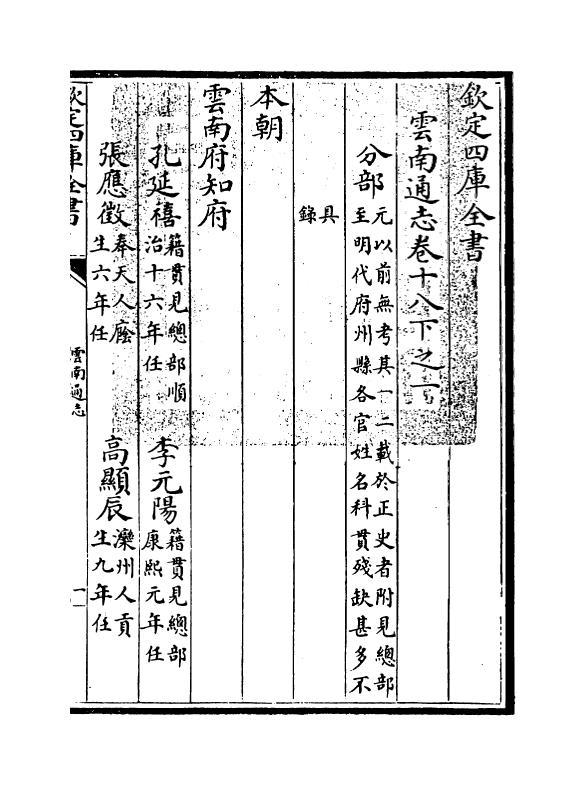 欽定四庫全書
雲南通志卷十八下之一
分部元以前無考其一二載於正史者附見總部
至明代府州縣各官姓名科貫殘缺甚多不
具
錄
本朝
雲南府知府
孔延禧籍貫見總部順
治十六年任
李元陽籍貫見總部
康熙元年任
張應徵奉天人廕
生六年任
高顯辰灤州人貢
生九年任
欽定四庫全書
雲南通志
一